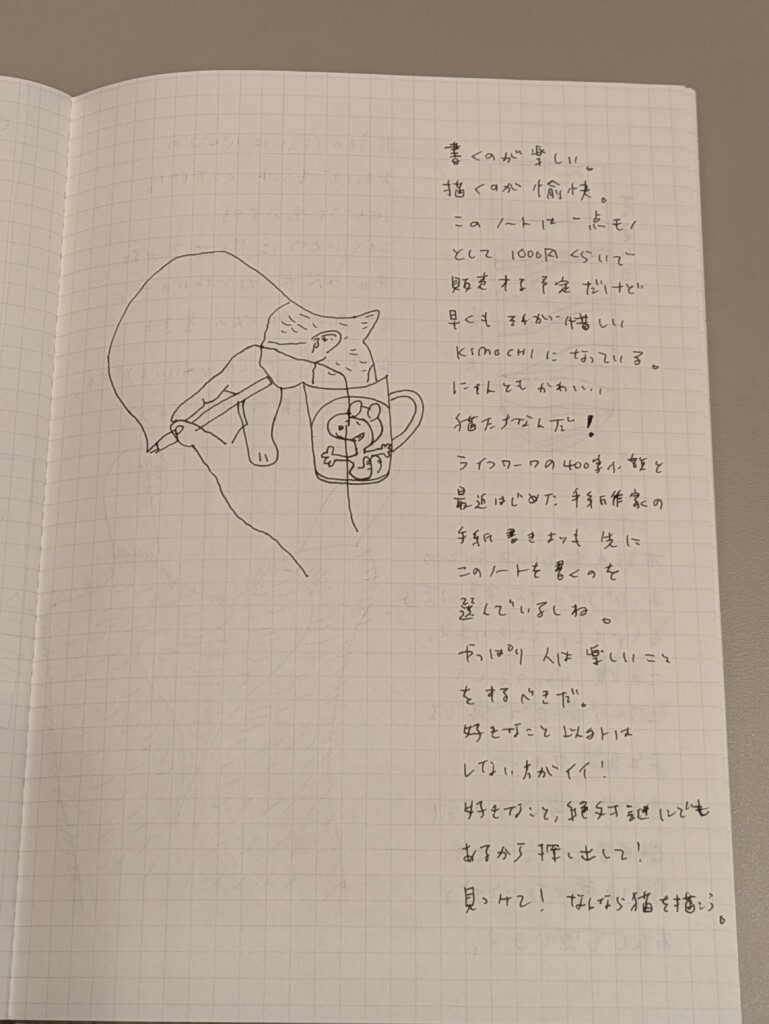 書くのが楽しい。
描くのが愉快。
このノートは一点モノ
として1000円くらいで
販売する予定だけど
早くもそれが惜しい
KIMOCHIになっている。
なんともかわいい
猫たちなんだ!
ライフワークの400字小説と
最近はじめた手紙作家の
手紙書きよりも先に
このノートを書くのを
選んでいるしね。
やっぱり人は楽しいこと
をするべきだ。
好きなこと以外は
しない方がイイ!
好きなこと、絶対誰にでも
あるから探し出して!
見つけて! なんなら猫を描こう。